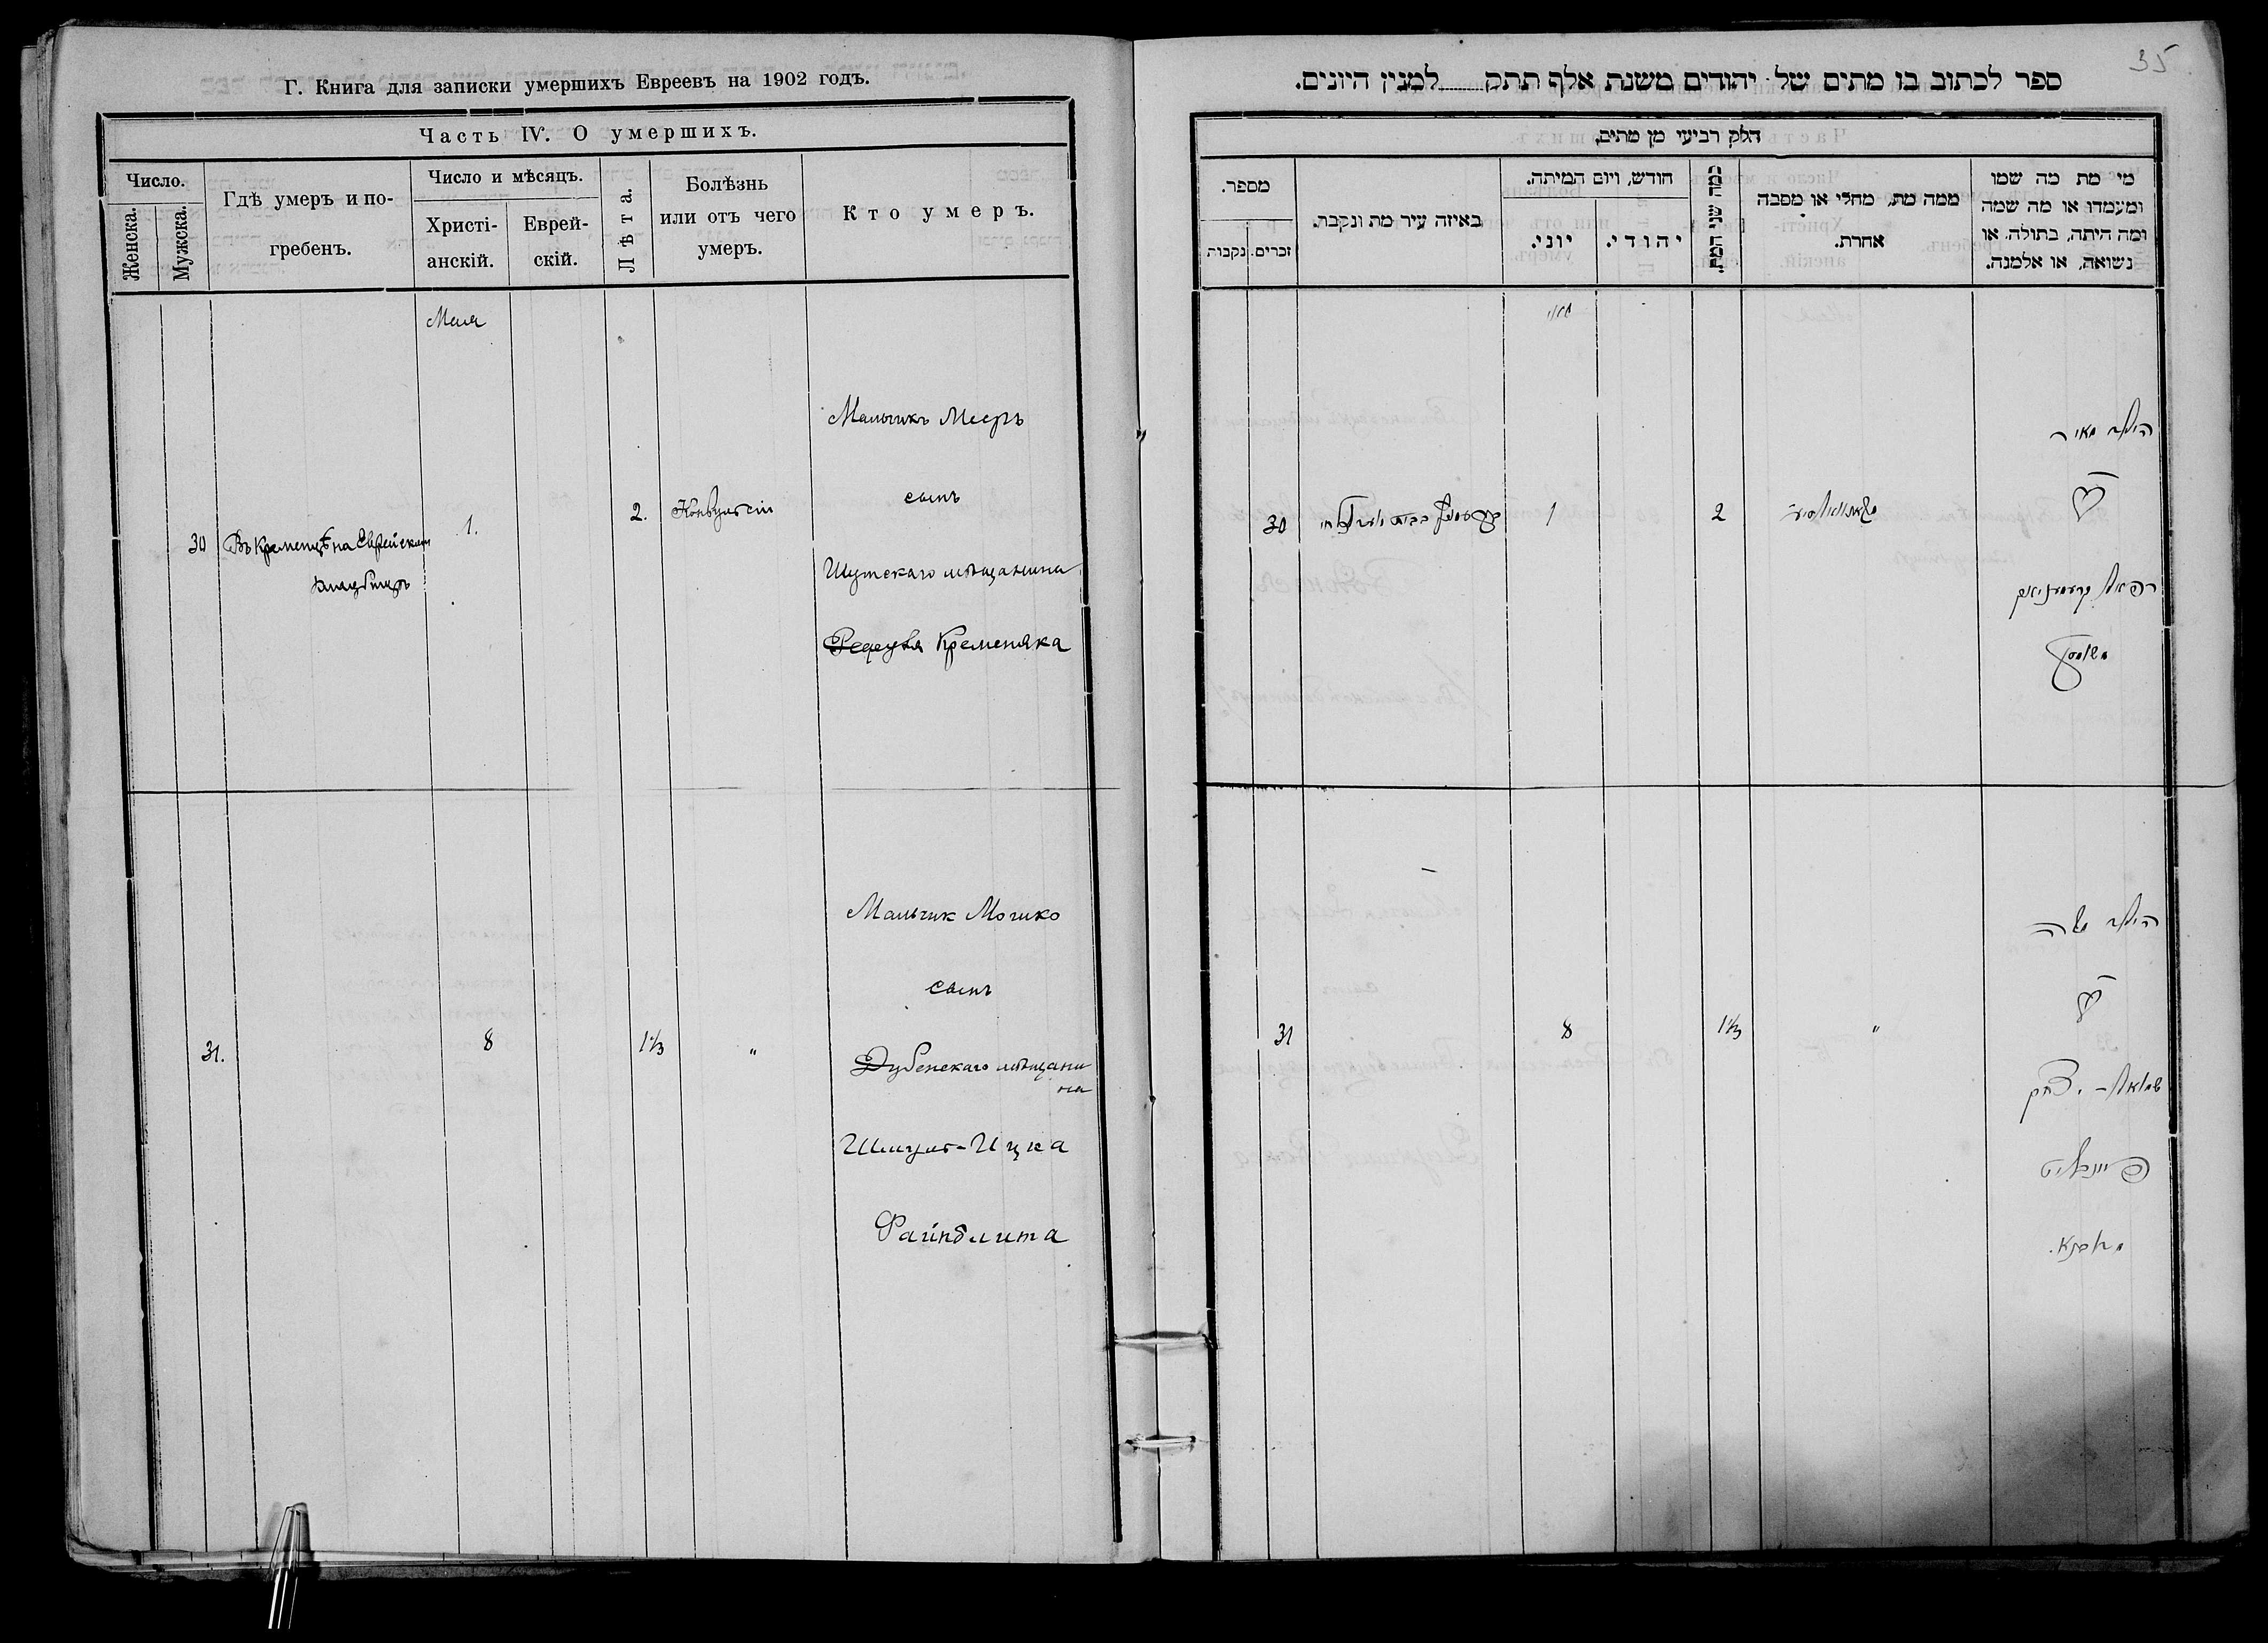 Г. Книга для записки умершихъ Евреевъ на 1902 годъ.
Часть IV. О умершихъ.
Число.
Женска.
Мужска.
Гдѣ умеръ и по-
гребенъ.
Число и мѣсяцъ.
Христі-
анскій.
Еврей-
скій.
Лѣта.
Болѣзнь
или отъ чего
умеръ.
Кто умеръ.
Мая
30
Въ Кременцѣ на Еврейском
кладбищѣ
1.
2.
Конвульсіи
Мальчикъ Мееръ
сынъ
Шумскаго мѣщанина
Кременяка
31.
8
1⅓
"
Мальчик Мошко
сынъ
Дубенскаго мѣщани
на
Шмуль-Ицка
Файнблита
35
ספר לכתוב בו מתים של יהודים משנת אלף תתק למנין היונים.
חלק רביעי מן מתים.
מספר.
זכרים.
נקבות
באיזה עיר מת ונקבר.
חודש, ויום המיתה.
יוני.
יהודי.
כמה שני המת.
ממה מת, מחלי או מסבה
אחרת.
מי מת מה שמו
ומעמדו או מה שמה
ומה היתה, בתולה, או
נשואה, או אלמנה.
מאי
30
1
2
הילד מאיר
רפאל קרעמעניאק
משומסק
31
8
1⅓
"
הילד משה
שמואל - יצחק
פיינבליט
מדובנא.